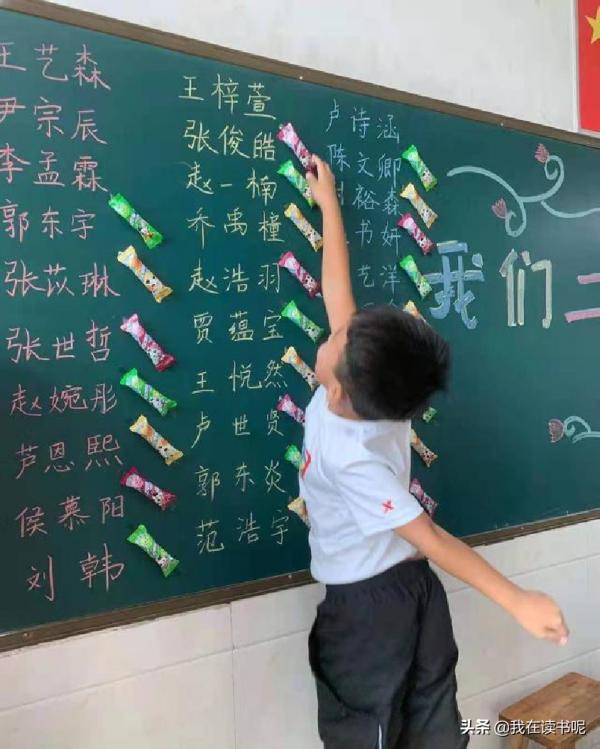 王艺森
尹宗辰
李孟霖
郭东宇
张苡琳
张世哲
赵婉彤
芦恩熙
侯慕阳
刘韩
王梓萱
张俊皓
赵一楠
乔禹橦
赵浩羽
贾蕴宝
王悦然
卢世贤
郭东炎
范浩宇
卢诗涵
陈文卿
裕森
书妍
艺洋
我们二
头条 @我在读书呢